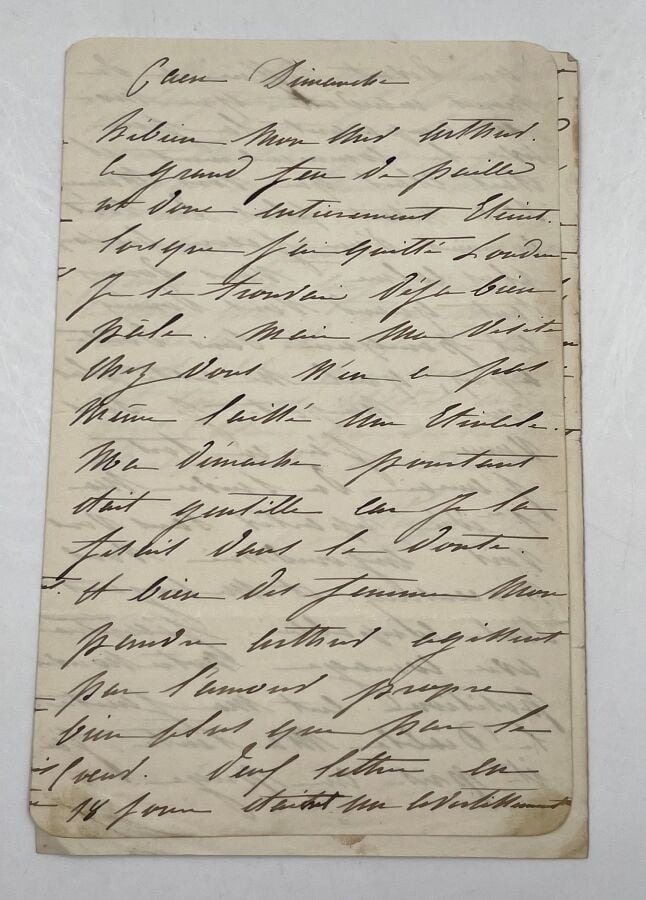 Caen Dimanche
hé bien mon cher Arthur.
le grand feu de paille
est donc entierement Eteint.
lorsque j'ai quitté Londre
Je le trouvais déja bien
pâle. mais ma visite
chez vous n'en a pas
même laissé une Etincele.
Ma démarche pourtant
était gentille car Je la
fesait dans le doute.
et bien des femmes mon
pauvre Arthur agissent
par l'amour propre
bien plus que par le
Coeur. deux lettre en
18 jours etait un avertissement